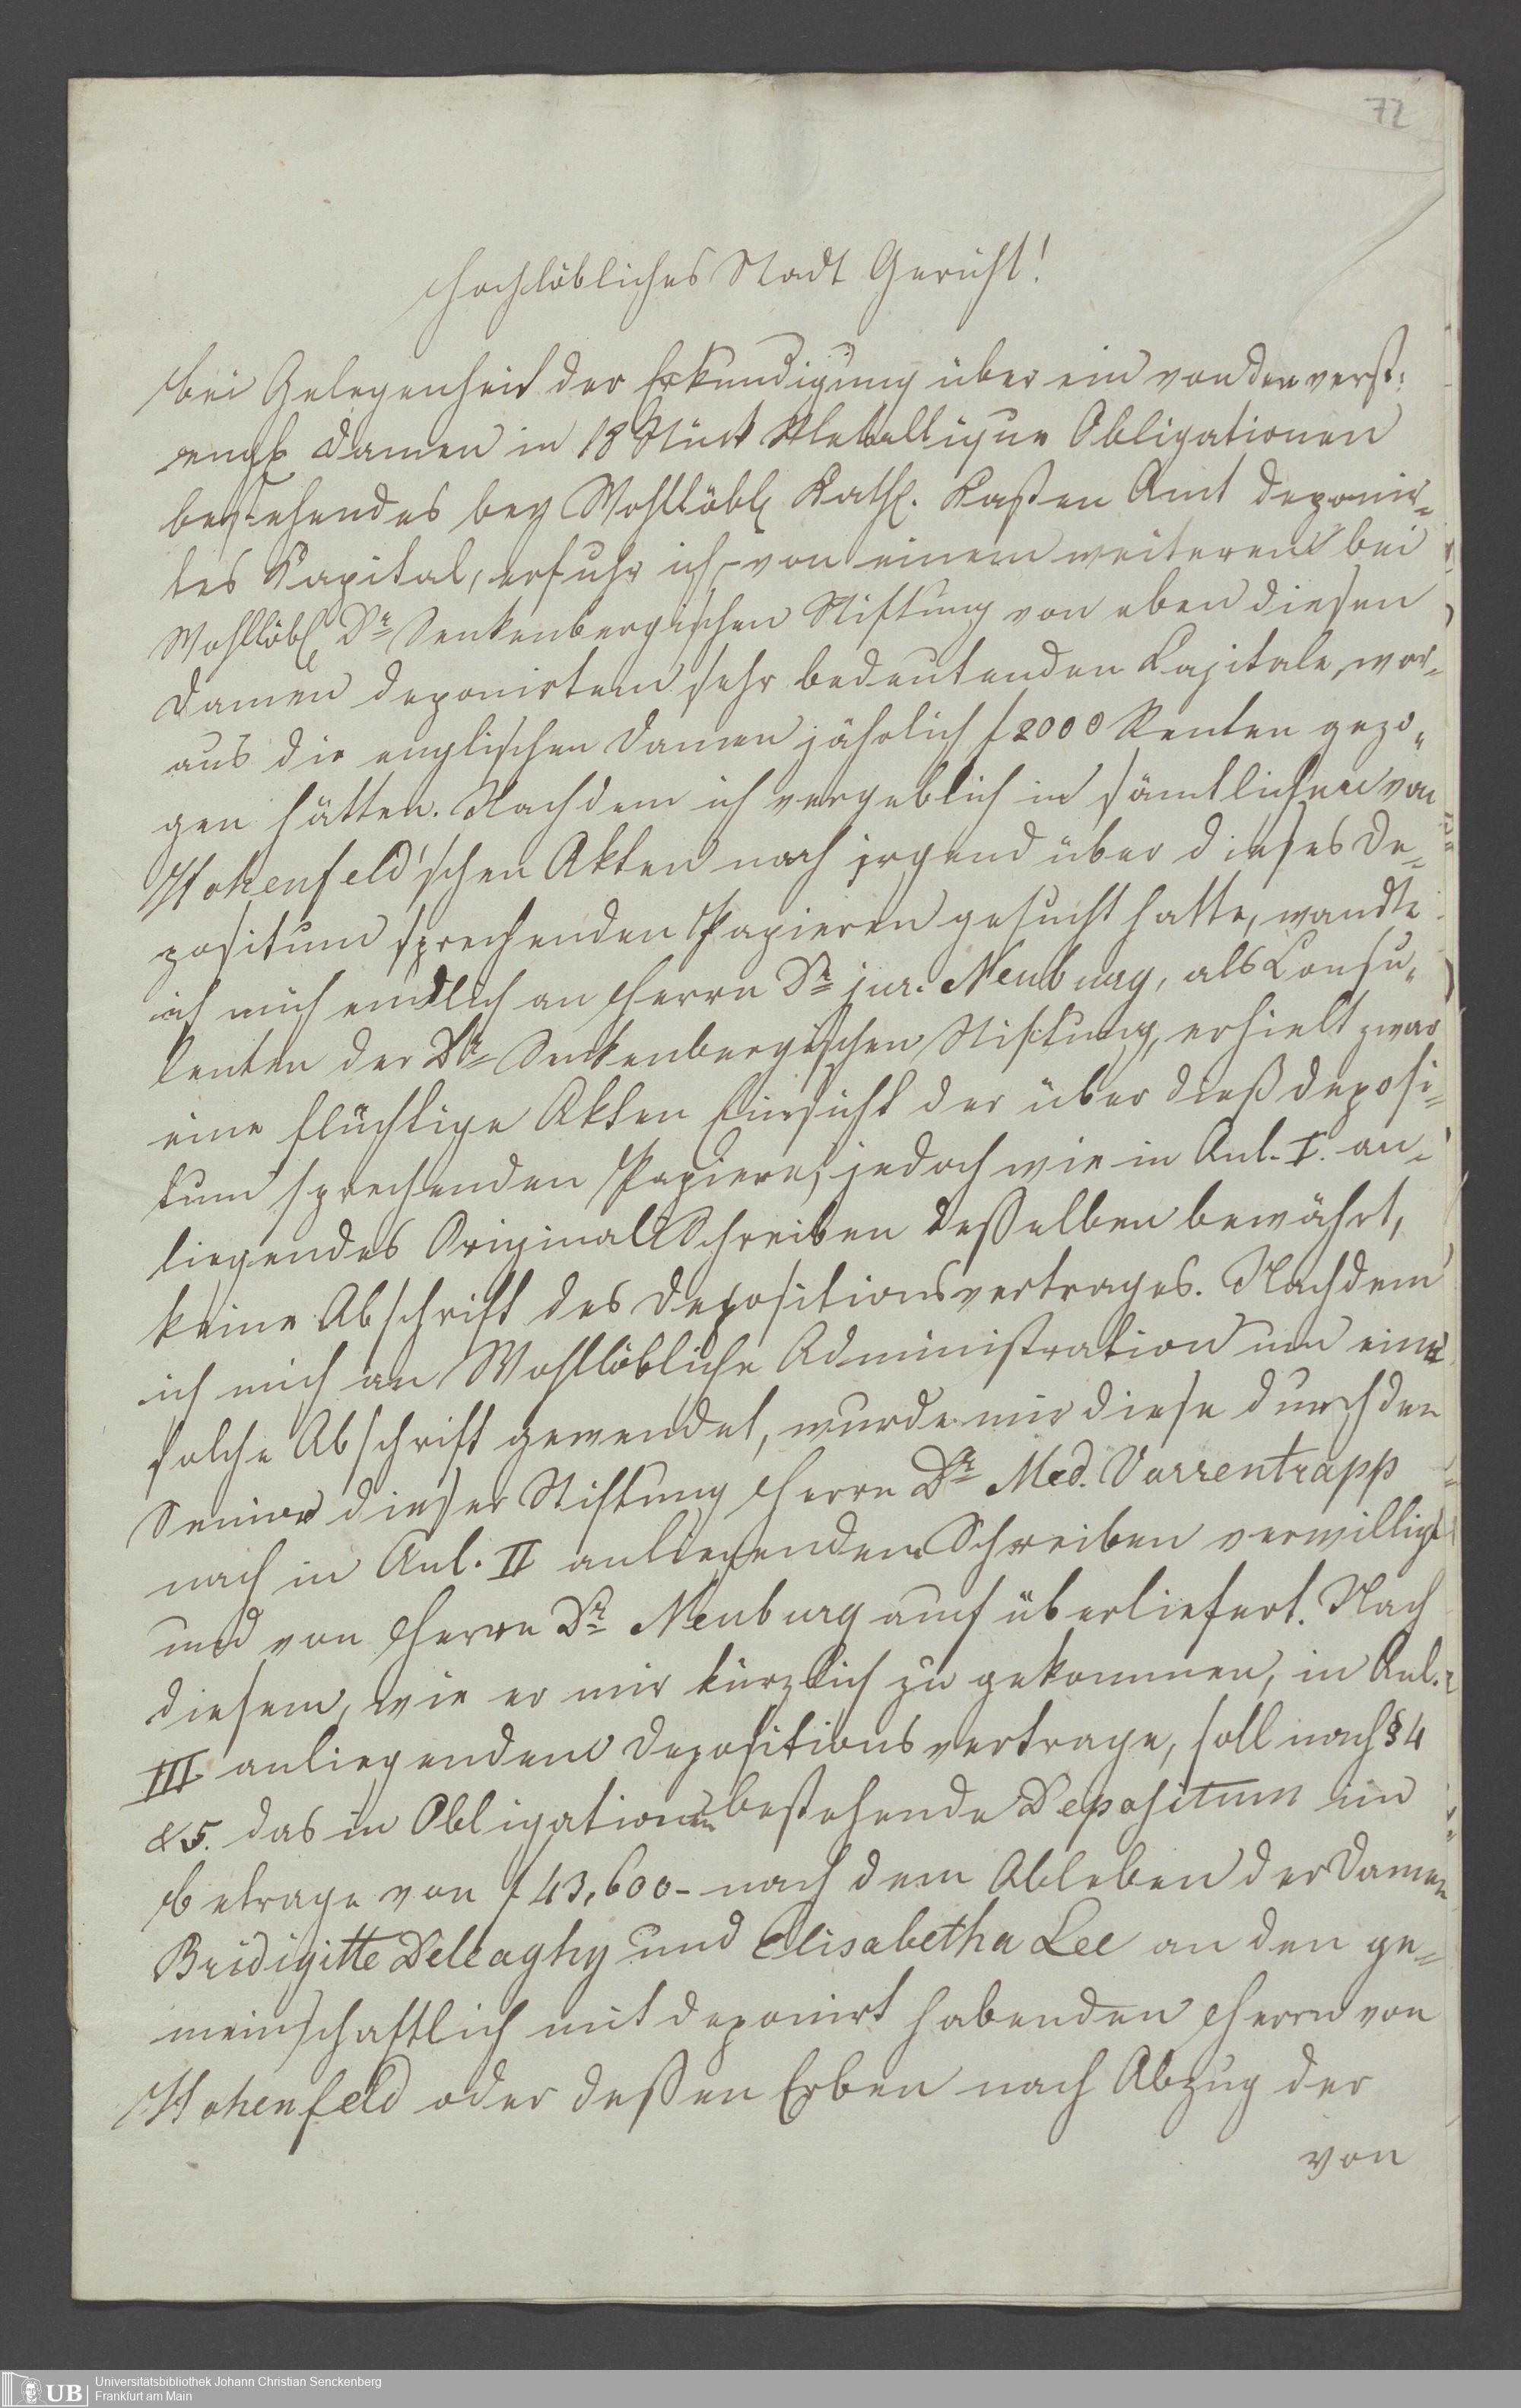 72
Hochlöbliches Stadt Gericht!
Bei Gelegenheit der Erkundigung über ein von den verst:
engl. Damen in 18 Stück Metallique Obligationen
bestehendes bey Wohllöbl. Kath. Kasten Amt deponir-
tes Kapital, erfuhr ich von einem weiteren bei
Wohllöbl. Dr. Senkenbergischen Stiftung von eben diesen
Damen deponirtem sehr bedeutenden Kapitale, wor-
aus die englischen Damen jährlich f 2000 Renten gezo-
gen hätten. Nachdem ich vergeblich in sämtlichen von
Hohenfeld'schen Akten nach irgend über dieses De-
positum sprechenden Papieren gesucht hatte, wandte
ich mich endlich an Herrn Dr. jur. Neuburg, als Consu-
lenten der Dr. Senkenbergischen Stiftung, erhielt zwar
eine flüchtige Akten Einsicht der über dieß Deposi-
tum sprechenden Papiere, jedoch wie in Anl. I. an-
liegendes Original Schreiben desselben bewährt,
keine Abschrift des Depositionsvertrages. Nachdem
ich mich an Wohllöbliche Administration um eine
solche Abschrift gewendet, wurde mir diese durch den
Senior dieser Stiftung Herrn Dr. Med. Varrentrapp
nach in Anl. II anliegendem Schreiben verwilligt
und von Herrn Dr. Neuburg auch überliefert. Nach
diesem, wie er mir kürzlich zu gekommen, in Anl.
III anliegendem Depositionsvertrage, soll nach § 4
& 5. das in Obligationen bestehende Depositum im
Betrage von f 43,600 - nach dem Ableben der Damen
Bridigitte Deleaghy und Elisabetha Lee an den ge-
meinschaftlich mit deponirt habenden Herrn von
Hohenfeld oder deßen Erben nach Abzug der
von
UB
Universitätsbibliothek Johann Christian Senckenberg
Frankfurt am Main